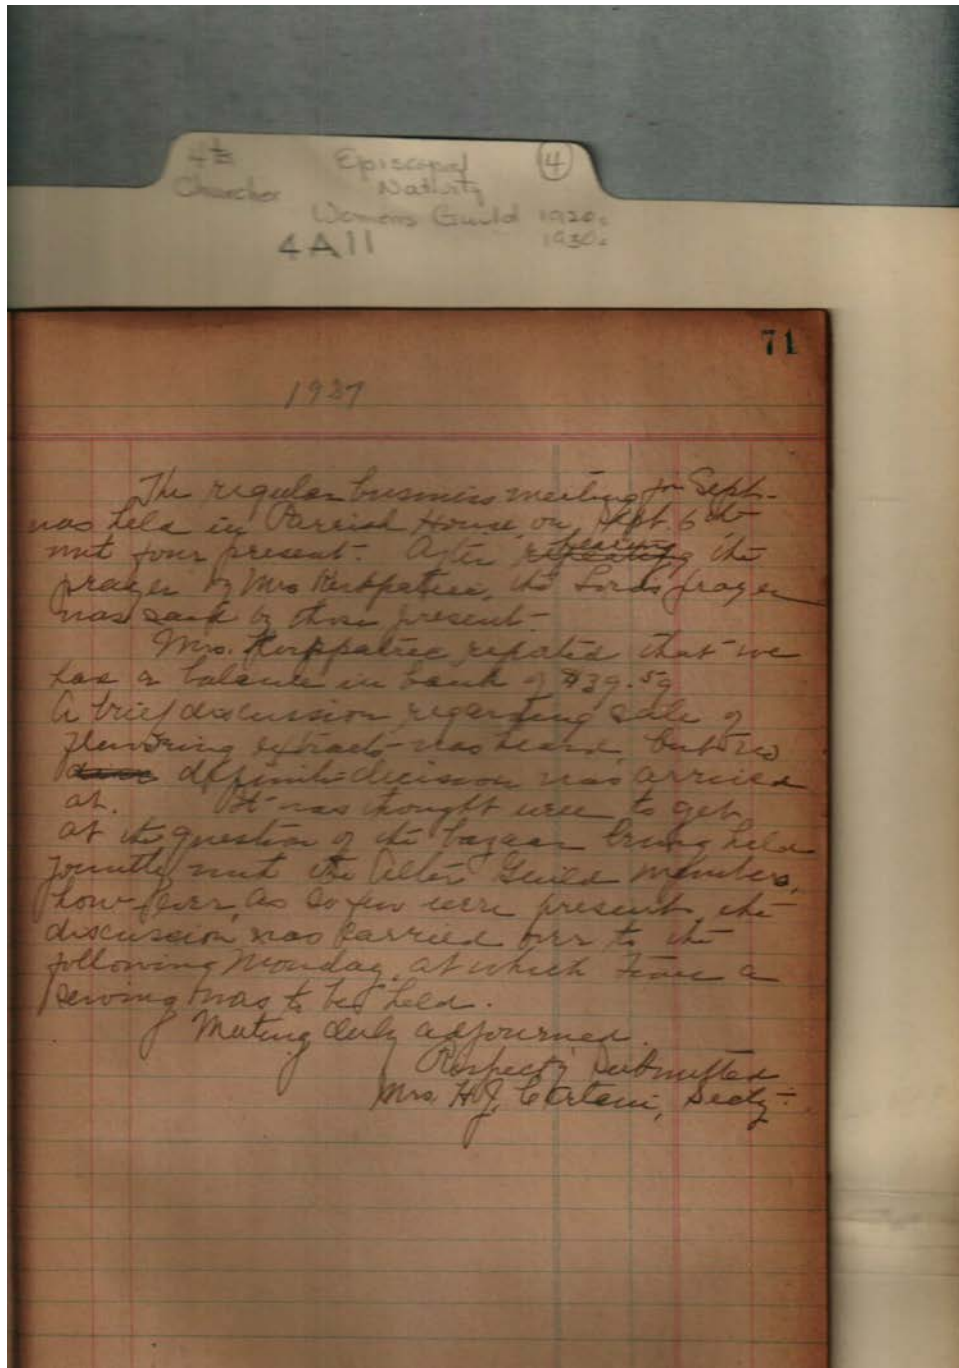 4th Episcopal 4
Churches Nativity
Womens Guild 1920s
4A11 1930s
71
1937
The regular business meeting for Sept.
was held in Parrish House, on Sept. 6th
with four present. After hearing the
prayer by Mrs Kirkpatric, the Lords prayer
was said by those present.
Mrs. Kirkpatric reported that we
had a balance in bank of $39.59
A brief discussion regarding sale of
flavoring extracts was heard, but no
definite decision was arrived
at. It was thought well to get
at the question of the bazaar being held
jointly with the Alter Guild members,
how-ever, as so few were present, the
discussion was carried over to the
following Monday, at which time a
sewing was to be held.
Meeting duly adjourned.
Respect'y Submitted
Mrs H.J. Secty.